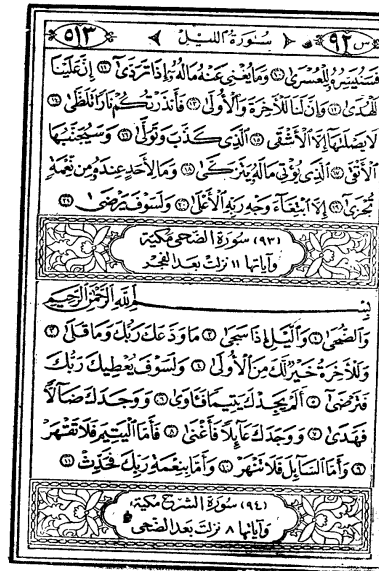 س ٩٢ سُورَةُ اللَّيْل ٥١٣
فَسَنُيَسِّرُهُ لِلْعُسْرَىٰ ١٠ وَمَا يُغْنِي عَنْهُ مَالُهُ إِذَا تَرَدَّىٰ ١١ إِنَّ عَلَيْنَا
لَلْهُدَىٰ ١٢ وَإِنَّ لَنَا لَلْآخِرَةَ وَالْأُولَىٰ ١٣ فَأَنذَرْتُكُمْ نَارًا تَلَظَّىٰ ١٤
لَا يَصْلَىٰهَا إِلَّا الْأَشْقَى ١٥ الَّذِي كَذَّبَ وَتَوَلَّىٰ ١٦ وَسَيُجَنَّبُهَا
الْأَتْقَى ١٧ الَّذِي يُؤْتِي مَالَهُ يَتَزَكَّىٰ ١٨ وَمَا لِأَحَدٍ عِندَهُ مِن نِّعْمَةٍ
تُجْزَىٰ ١٩ إِلَّا ابْتِغَاءَ وَجْهِ رَبِّهِ الْأَعْلَىٰ ٢٠ وَلَسَوْفَ يَرْضَىٰ ٢١
(٩٣) سُورَةُ الضُّحَى مَكِّيَّة
وَآيَاتُهَا ١١ نَزَلَتْ بَعْدَ الفَجْر
بِسْمِ اللَّهِ الرَّحْمَٰنِ الرَّحِيمِ
وَالضُّحَىٰ ١ وَاللَّيْلِ إِذَا سَجَىٰ ٢ مَا وَدَّعَكَ رَبُّكَ وَمَا قَلَىٰ ٣
وَلَلْآخِرَةُ خَيْرٌ لَّكَ مِنَ الْأُولَىٰ ٤ وَلَسَوْفَ يُعْطِيكَ رَبُّكَ
فَتَرْضَىٰ ٥ أَلَمْ يَجِدْكَ يَتِيمًا فَآوَىٰ ٦ وَوَجَدَكَ ضَالًّا
فَهَدَىٰ ٧ وَوَجَدَكَ عَائِلًا فَأَغْنَىٰ ٨ فَأَمَّا الْيَتِيمَ فَلَا تَقْهَرْ
٩ وَأَمَّا السَّائِلَ فَلَا تَنْهَرْ ١٠ وَأَمَّا بِنِعْمَةِ رَبِّكَ فَحَدِّثْ ١١
(٩٤) سُورَةُ الشَّرْحِ مَكِّيَّة
وَآيَاتُهَا ٨ نَزَلَتْ بَعْدَ الضُّحَى